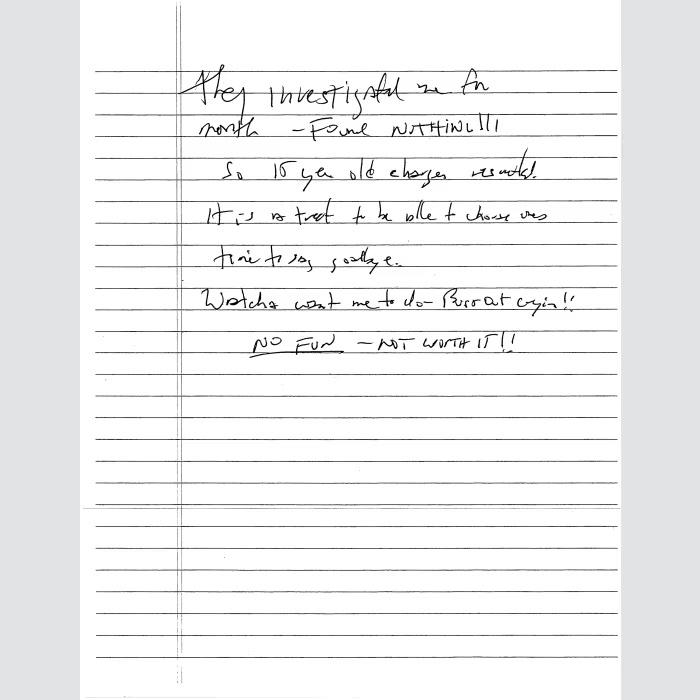 they investigated me for
month – Found NOTHING!!!
So 15 year old charges resulted.
It is a treat to be able to choose ones
time to say goodbye.
Watcha want me to do – Burst out cryin!!
NO FUN – NOT WORTH IT!!